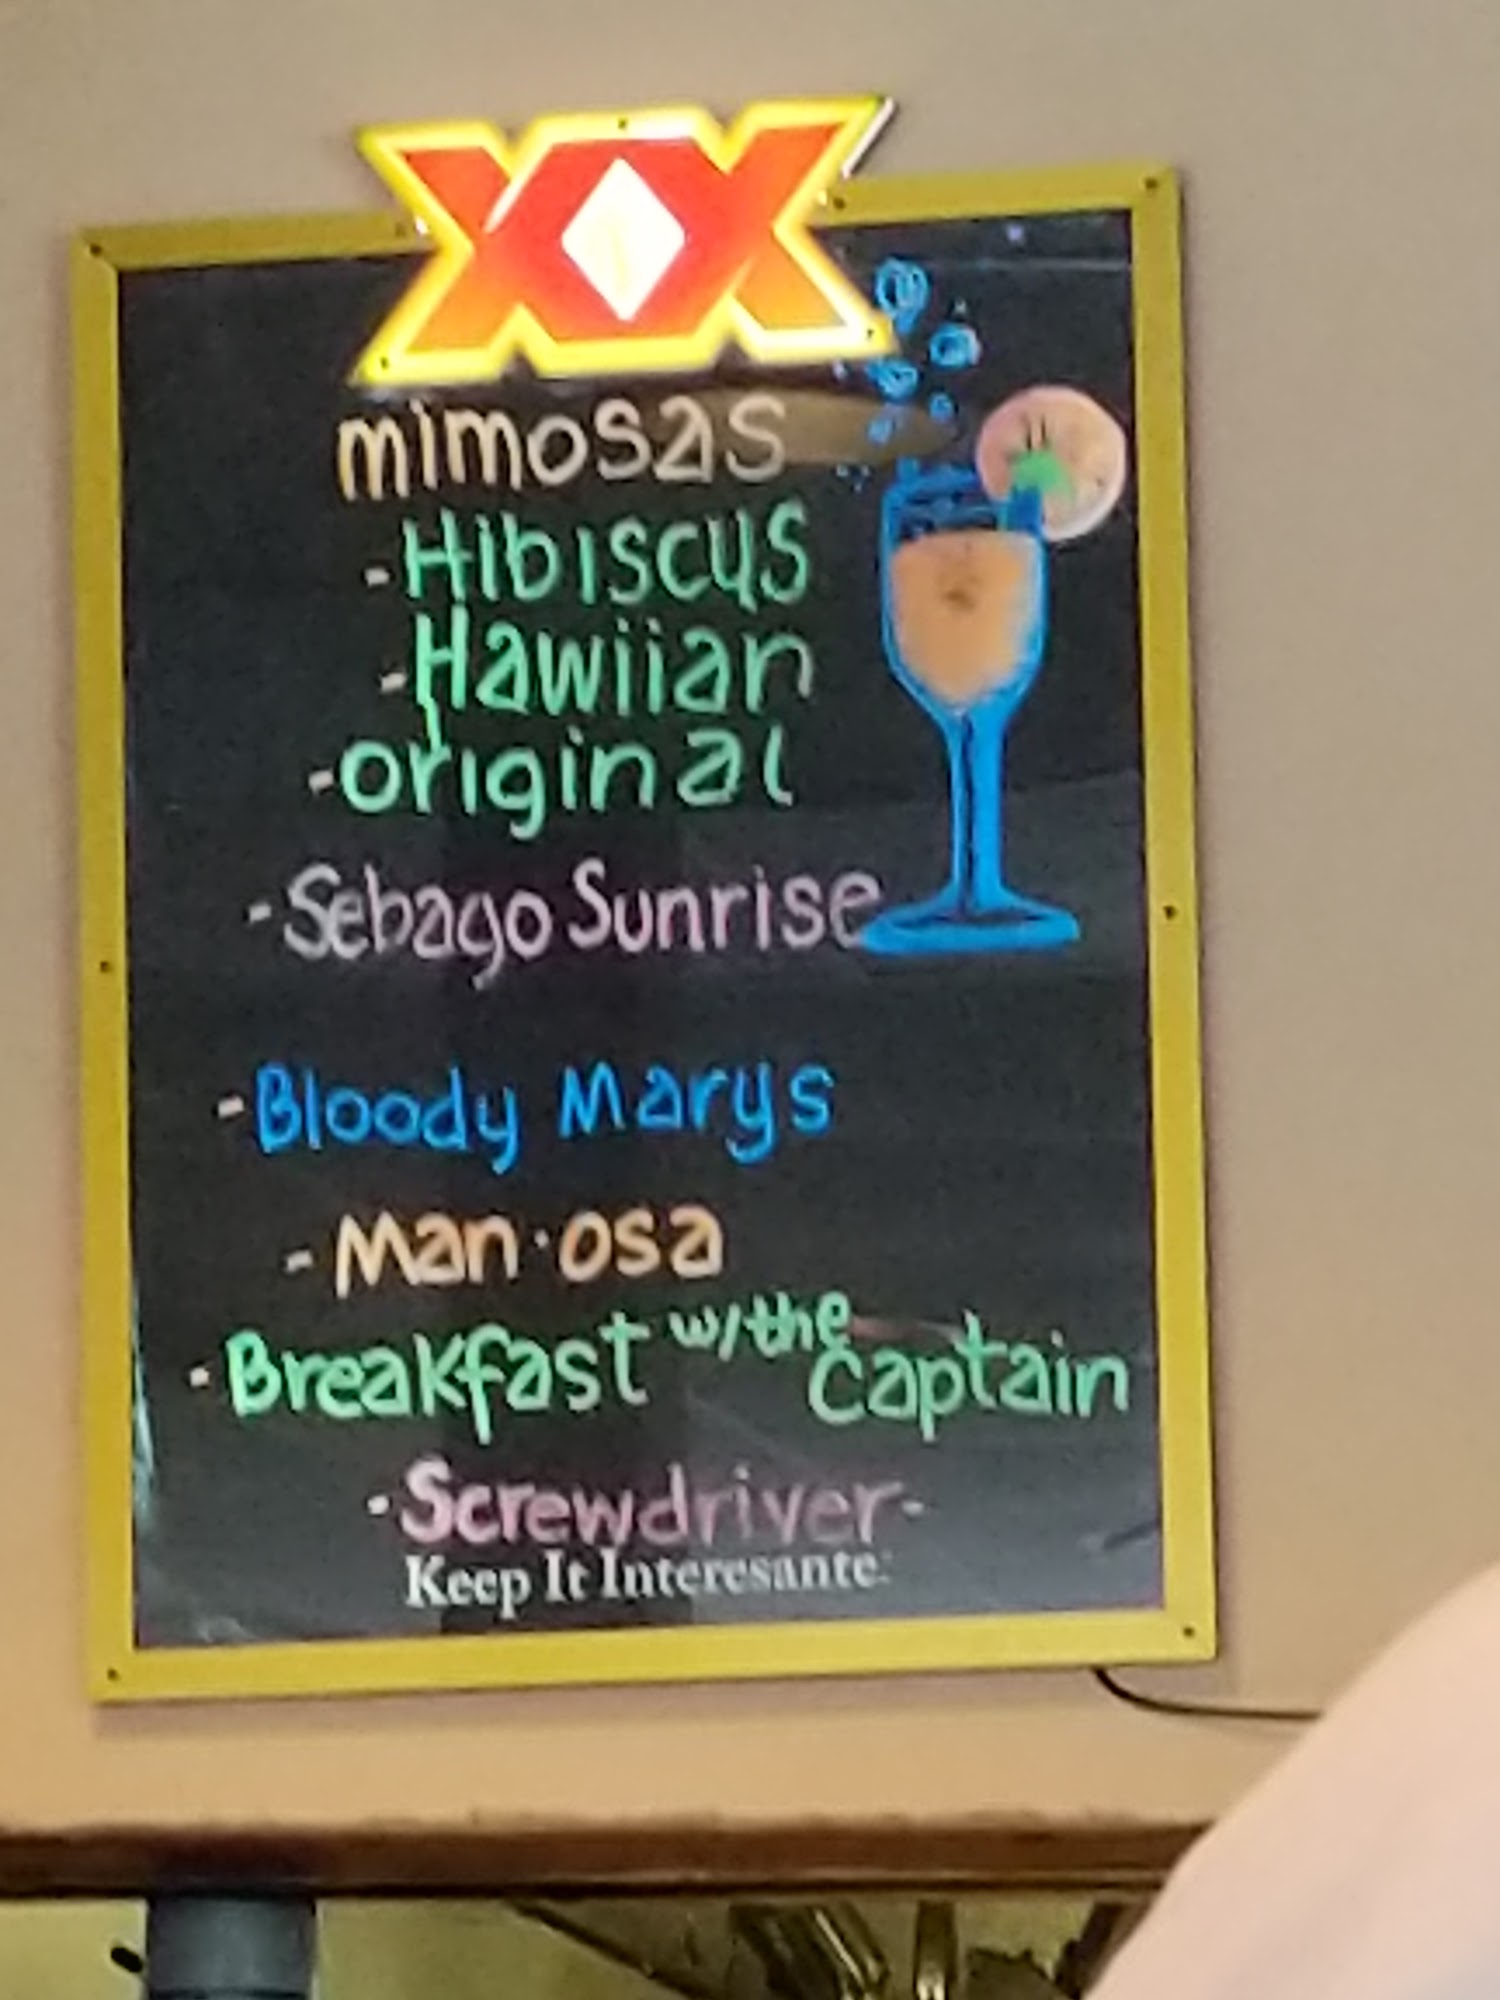 XX
mimosas
-Hibiscus
-Hawiian
-original
-Sebago Sunrise
-Bloody Marys
-Man·osa
-Breakfast w/the Captain
-Screwdriver-
Keep It Interesante.